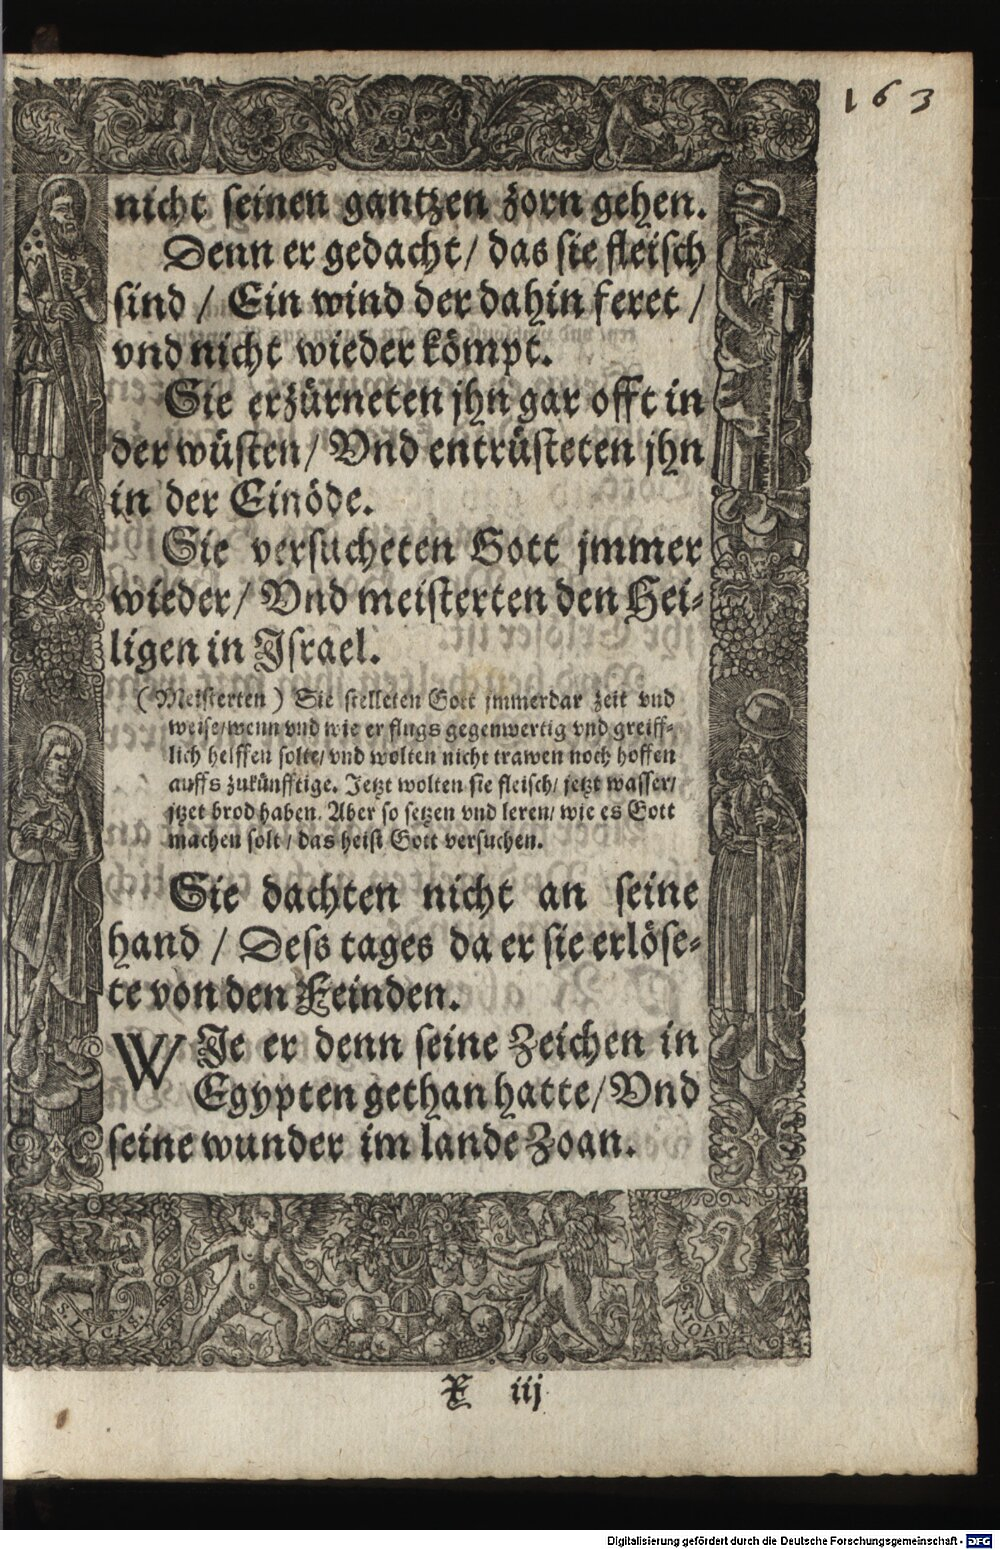 163
nicht seinen gantzen zorn gehen.
Denn er gedacht / das sie fleisch
sind / Ein wind der dahin feret /
vnd nicht wieder kömpt.
Sie erzürneten jhn gar offt in
der wüsten / Vnd entrüsteten jhn
in der Einöde.
Sie versucheten Gott jmmer
wieder / Vnd meisterten den Hei-
ligen in Israel.
(Meisterten) Sie stelleten Gott jmmerdar zeit vnd
weise / wenn vnd wie er flugs gegenwertig vnd greiff-
lich helffen solte / vnd wolten nicht trawen noch hoffen
auffs zukünfftige. Jetzt wolten sie fleisch / jetzt wasser /
jtzet brod haben. Aber so setzen vnd leren / wie es Gott
machen solt / das heist Gott versuchen.
Sie dachten nicht an seine
hand / Dess tages da er sie erlöse-
te von den Feinden.
WJe er denn seine Zeichen in
Egypten gethan hatte / Vnd
seine wunder im lande Zoan.
S. LVCAS.
S. IOAN
X iij
Digitalisierung gefördert durch die Deutsche Forschungsgemeinschaft - DFG